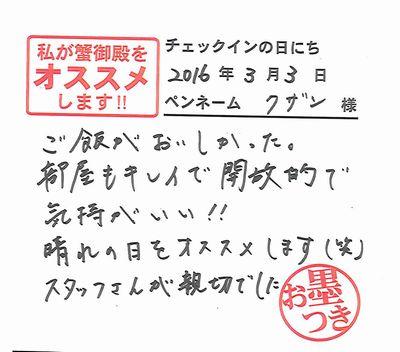 私が蟹御殿を
オススメ
します!!
チェックインの日にち
2016年3月3日
ペンネーム クザン 様
ご飯がおいしかった。
部屋もキレイで開放的で
気持がいい!!
晴れの日をオススメします(笑)
スタッフさんが親切でした
お墨つき